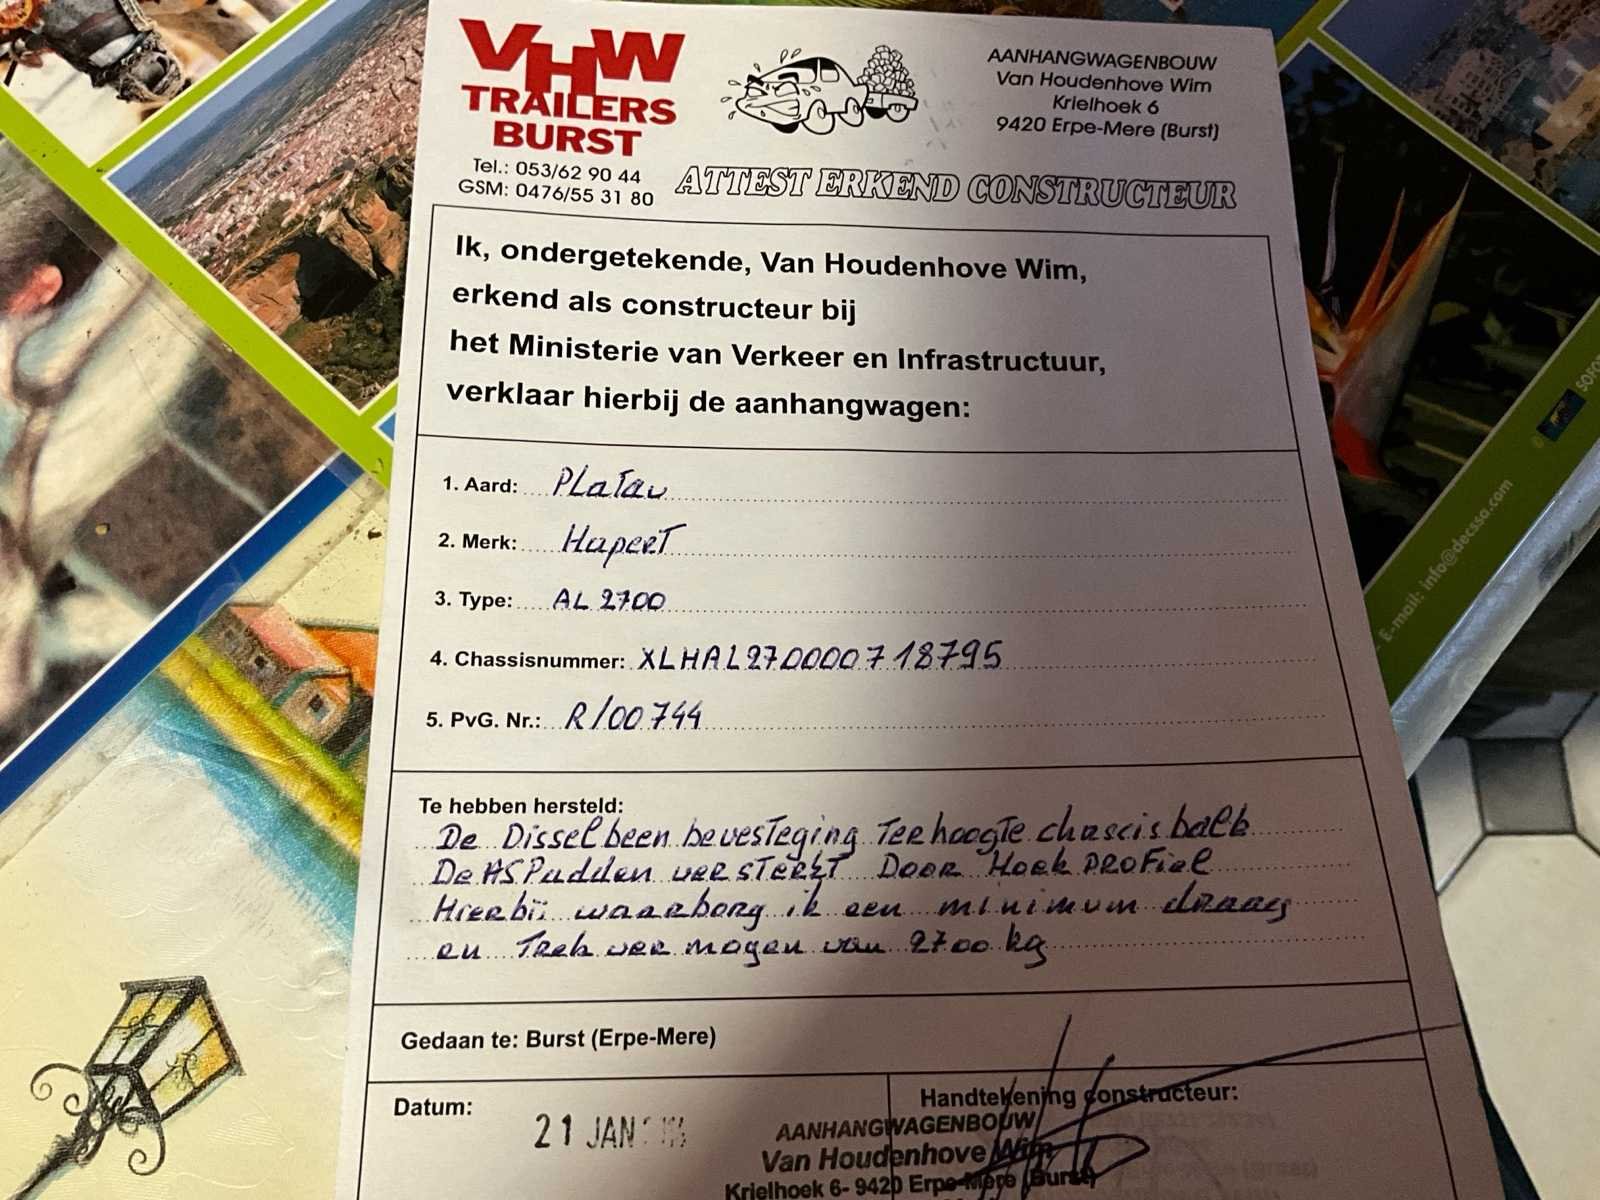 VHW
TRAILERS
BURST
Tel.: 053/62 90 44
GSM: 0476/55 31 80
AANHANGWAGENBOUW
Van Houdenhove Wim
Krielhoek 6
9420 Erpe-Mere (Burst)
ATTEST ERKEND CONSTRUCTEUR
Ik, ondergetekende, Van Houdenhove Wim,
erkend als constructeur bij
het Ministerie van Verkeer en Infrastructuur,
verklaar hierbij de aanhangwagen:
1. Aard: PLaTau
2. Merk: HaperT
3. Type: AL 2700
4. Chassisnummer: XLHAL270000718795
5. PvG. Nr.: R/00744
Te hebben hersteld:
De Disselbeen bevesTeging Ter hoogTe chascis balk
De ASPadden versTerkT Door Hoek PROFiel
Hierbij waarborg ik een minimum draag
en Trek vermogen van 2700 kg
Gedaan te: Burst (Erpe-Mere)
Datum: 21 JAN
Handtekening constructeur:
AANHANGWAGENBOUW
Van Houdenhove Wim
Krielhoek 6- 9420 Erpe-Mere (Burst)
E-mail: info@decssa.com